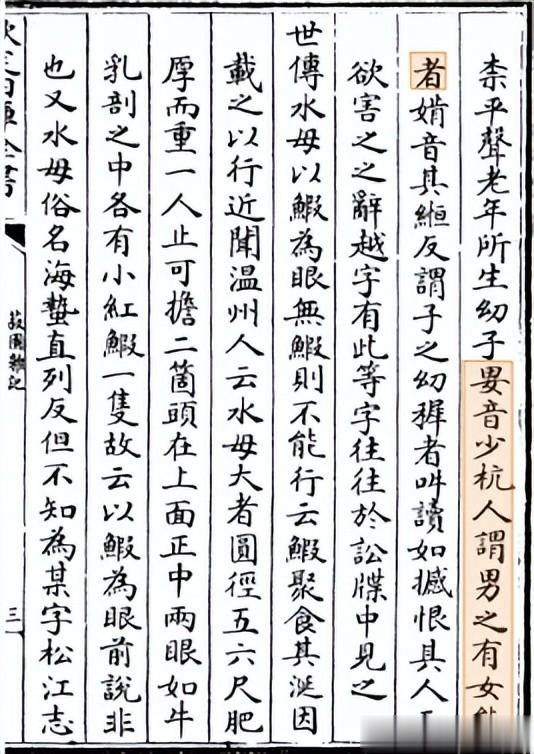 平聲老年所生幼子㚻音少杭人謂男之有女
者音其緪反謂子之幼穉者叫讀如撼恨其人
欲害之之辭越字有此等字往往於訟牒中見之
世傳水母以鰕為眼無鰕則不能行云鰕聚食其涎因
載之以行近聞温州人云水母大者圓徑五六尺肥
厚而重一人止可擔二箇頭在上面正中兩眼如牛
乳剖之中各有小紅鰕一隻故云以鰕為眼前說非
也又水母俗名海蜇直列反但不知為某字松江志
全書
菽園雜記
三